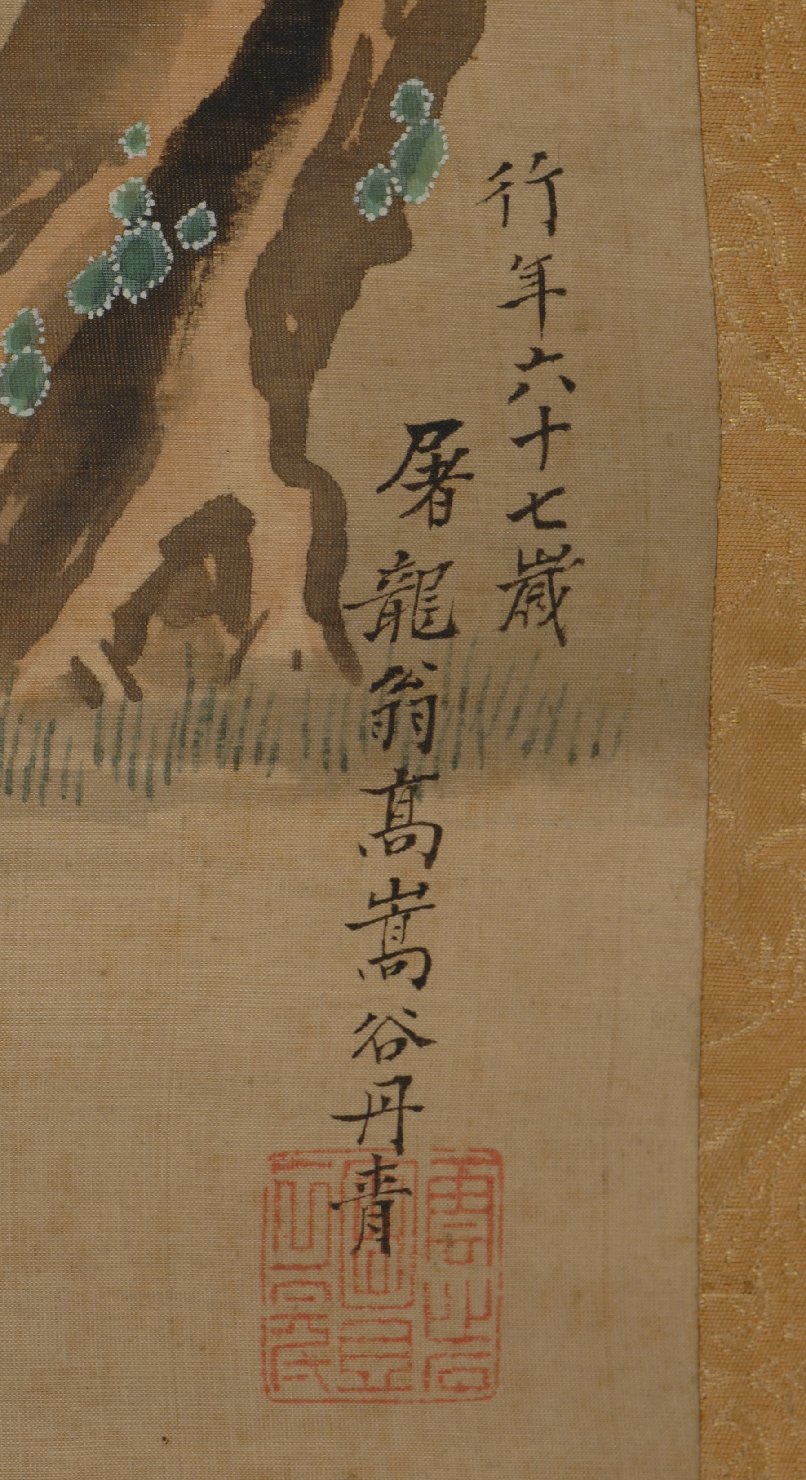 行年六十七歳
屠龍翁高嵩谷丹青